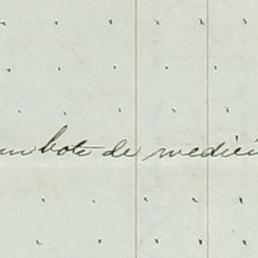 un bote de medici